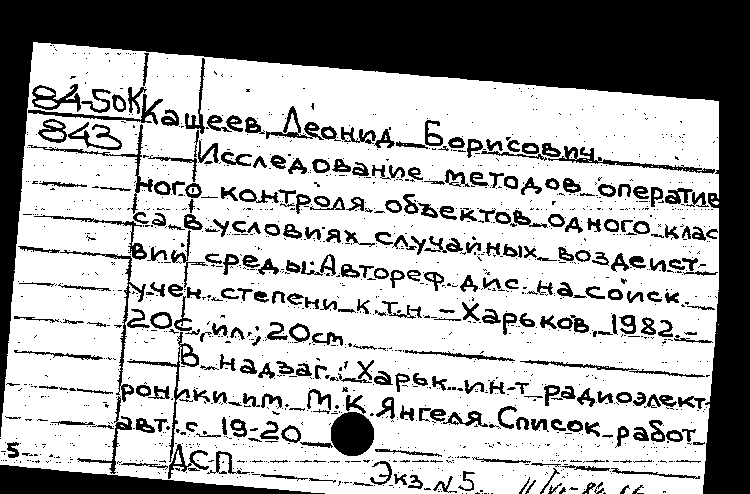 84-50К Кащеев, Леонид Борисович.
843
Исследование методов оператив
ного контроля объектов одного клас
са в условиях случайных воздейст-
вий среды: Автореф. дис. на соиск.
учен. степени к.т.н. – Харьков, 1982. –
20с., ил.; 20см.
В надзаг.: Харьк. ин-т радиоэлект-
роники им. М.К. Янгеля. Список работ
авт.: с. 19-20
ДСП. Экз. № 5.
5